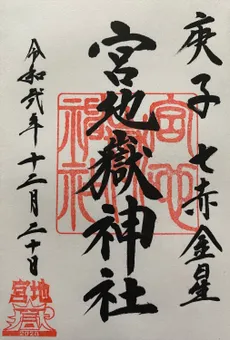 庚子七赤金星
宮地嶽神社
令和弐年十二月二十日
宮地
嶽